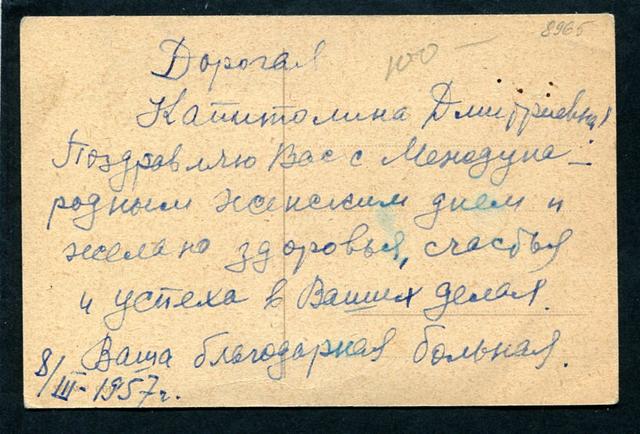 8965
100 —
Дорогая
Капитолина Дмитриевна!
Поздравляю Вас с Междуна-
родным женским днем и
желаю здоровья, счастья
и успеха в Ваших делах.
Ваша благодарная больная.
8/III-1957г.